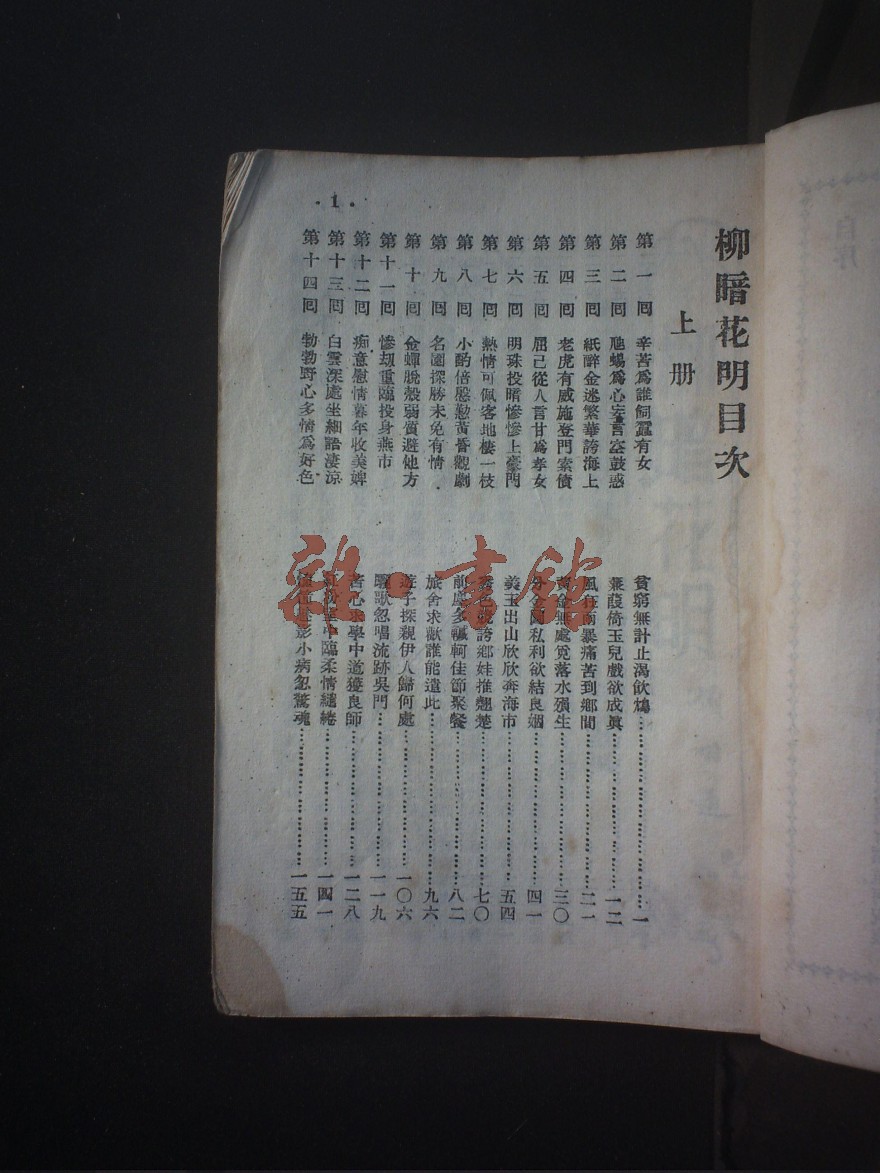 柳暗花明目次
上册
第一回 辛苦爲誰飼蠶有女 貧窮無計止渴飲鴆 一
第二回 虺蜴爲心妄言盅鼓惑 蒹葭倚玉兒戲欲成眞 一二
第三回 紙醉金迷繁華誇海上 風狂雨暴痛苦到鄉間 二一
第四回 老虎有威施登門索債 黃金無處覓落水殞生 三〇
第五回 屈己從人言甘爲孝女 分金圖私利欲結良姻 四一
第六回 明珠投暗慘慘上豪門 美玉出山欣欣奔海市 五四
第七回 熱情可佩客地棲一枝 秀色競誇鄉娃推翹楚 七〇
第八回 小酌倍慇懃黃昏觀劇 前塵多轗軻佳節聚餐 八二
第九回 名園探勝未免有情 旅舍求歡誰能遣此 九六
第十回 金蟬脫殼弱質避他方 遊子探親伊人歸何處 一〇六
第十一回 慘刧重臨投身燕市 驪歌忽唱流跡吳門 一一九
第十二回 痴意慰情暮年收美婢 苦心求學中道獲良師 一二八
第十三回 白雲深處坐細語淒涼 中臨柔情繾綣 一四一
第十四回 勃勃野心多情爲好色 影小病忽驚魂 一五五
·1·
自序
雜·書館